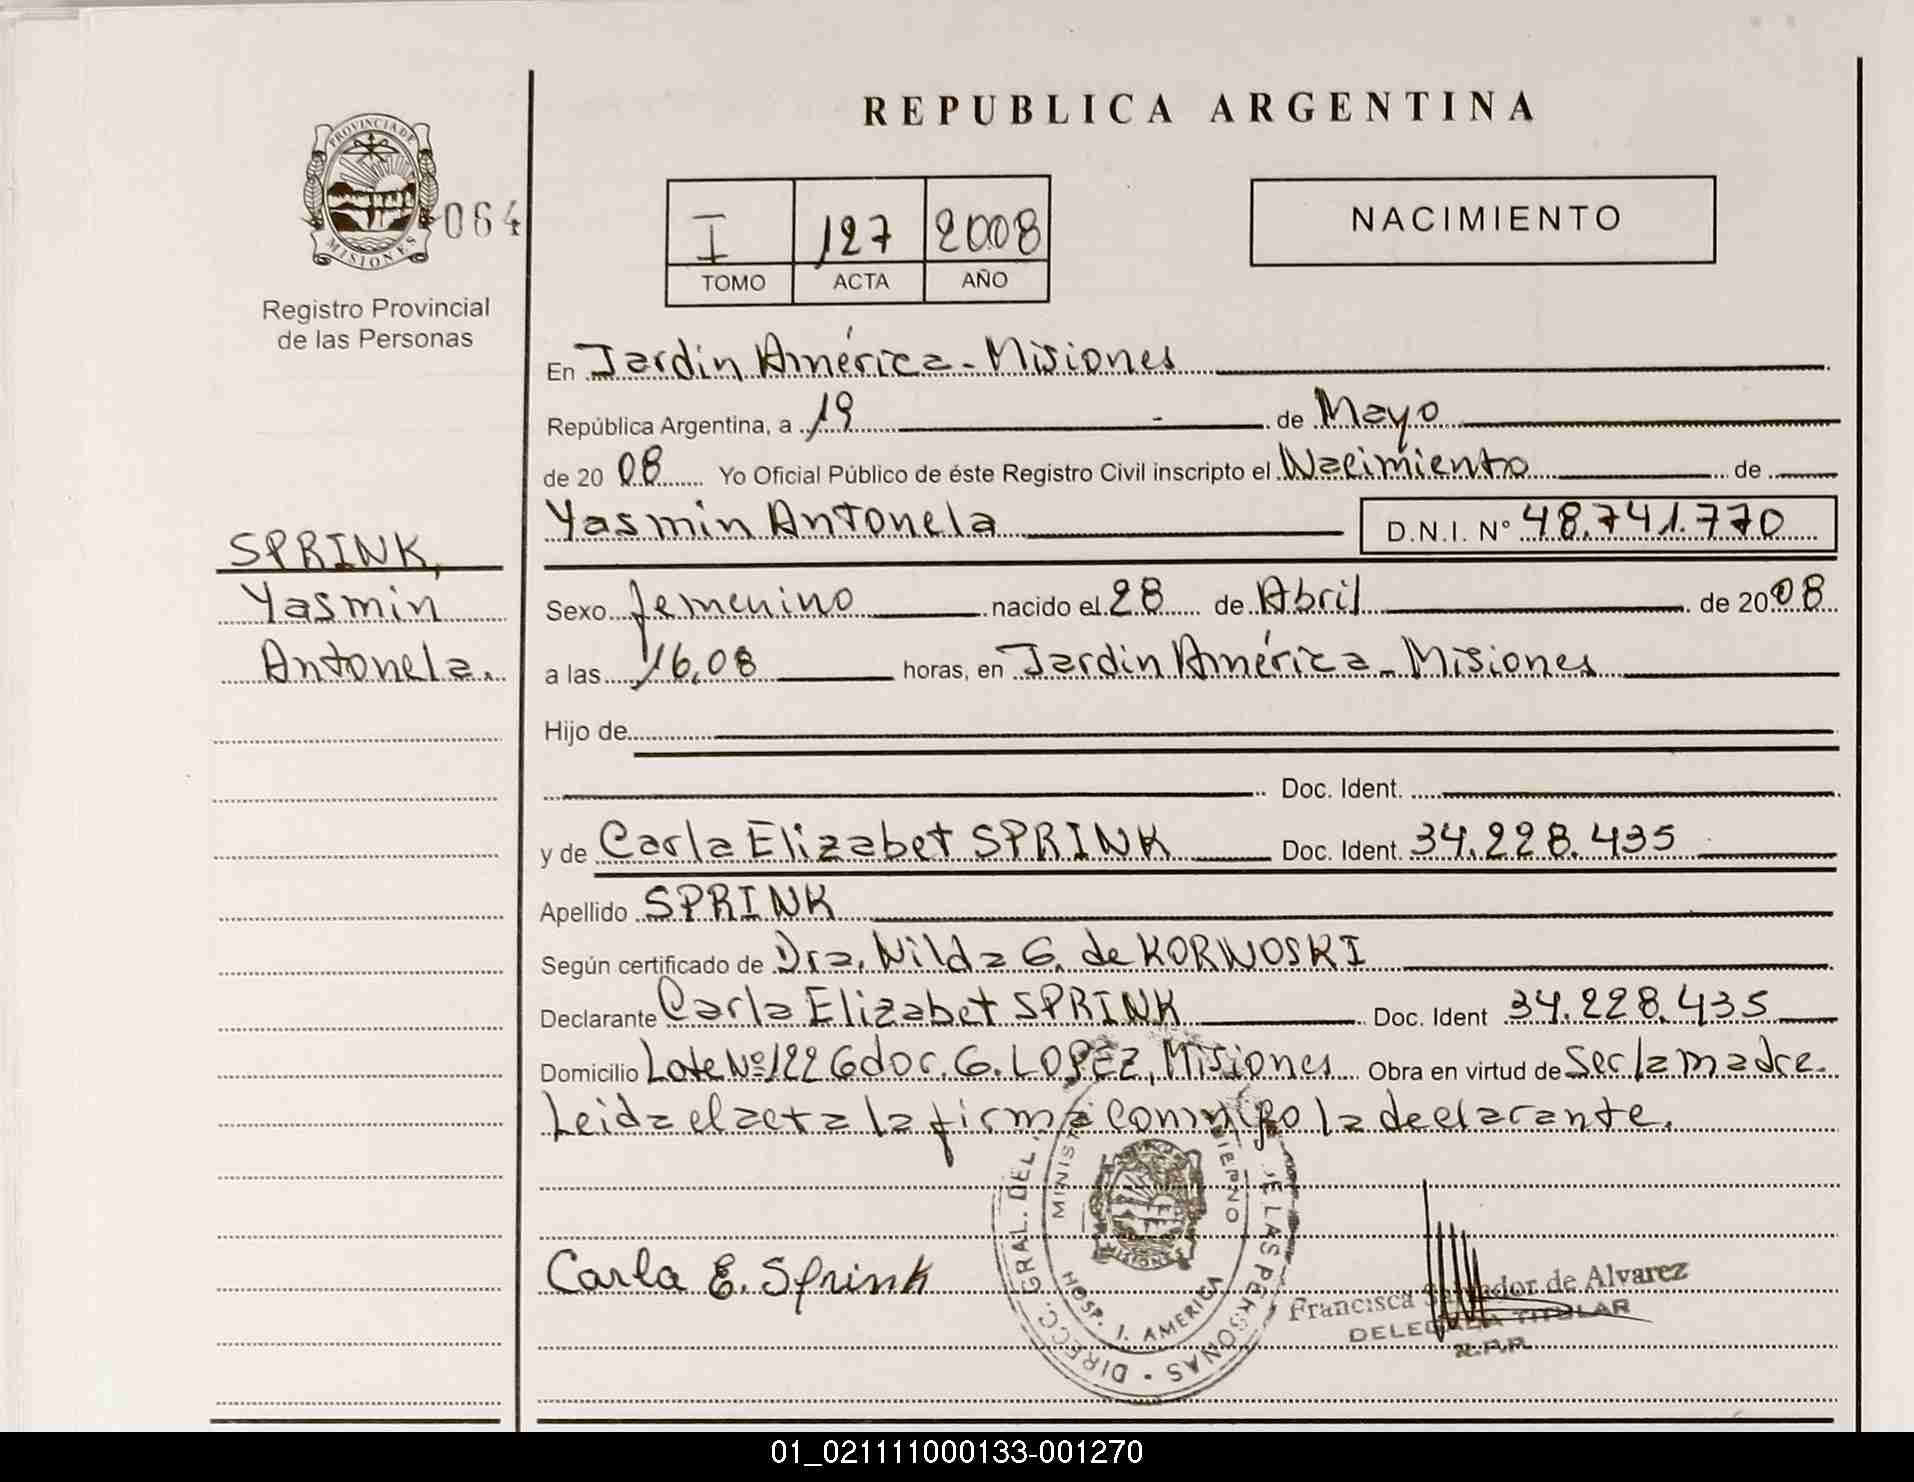 REPUBLICA ARGENTINA
PROVINCIA DE
MISIONES
064
Registro Provincial
de las Personas
I 127 2008
TOMO ACTA AÑO
NACIMIENTO
En Jardín América - Misiones
República Argentina, a 19 - de Mayo
de 2008 Yo Oficial Público de éste Registro Civil inscripto el Nacimiento de
Yasmin Antonela D.N.I. Nº 48.741.770
SPRINK,
Yasmin
Antonela.
Sexo femenino nacido el 28 de Abril de 2008
a las 16,08 horas, en Jardín América - Misiones
Hijo de
Doc. Ident.
y de Carla Elizabet SPRINK Doc. Ident. 34.228.435
Apellido SPRINK
Según certificado de Dra. Nilda G. de KORNOSKI
Declarante Carla Elizabet SPRINK Doc. Ident 34.228.435
Domicilio Lote Nº 122 Gdor. G. LOPEZ, Misiones Obra en virtud de Ser la madre.
Leida el acta la firma conmigo la declarante.
DIRECC. GRAL. DEL E LAS PERSONAS
MINIST IERNO
MISIONES
HOSP. J. AMERICA
Carla E. Sprink
Francisca Salvador de Alvarez
DELEGADA TITULAR
R.P.P.
01_021111000133-001270